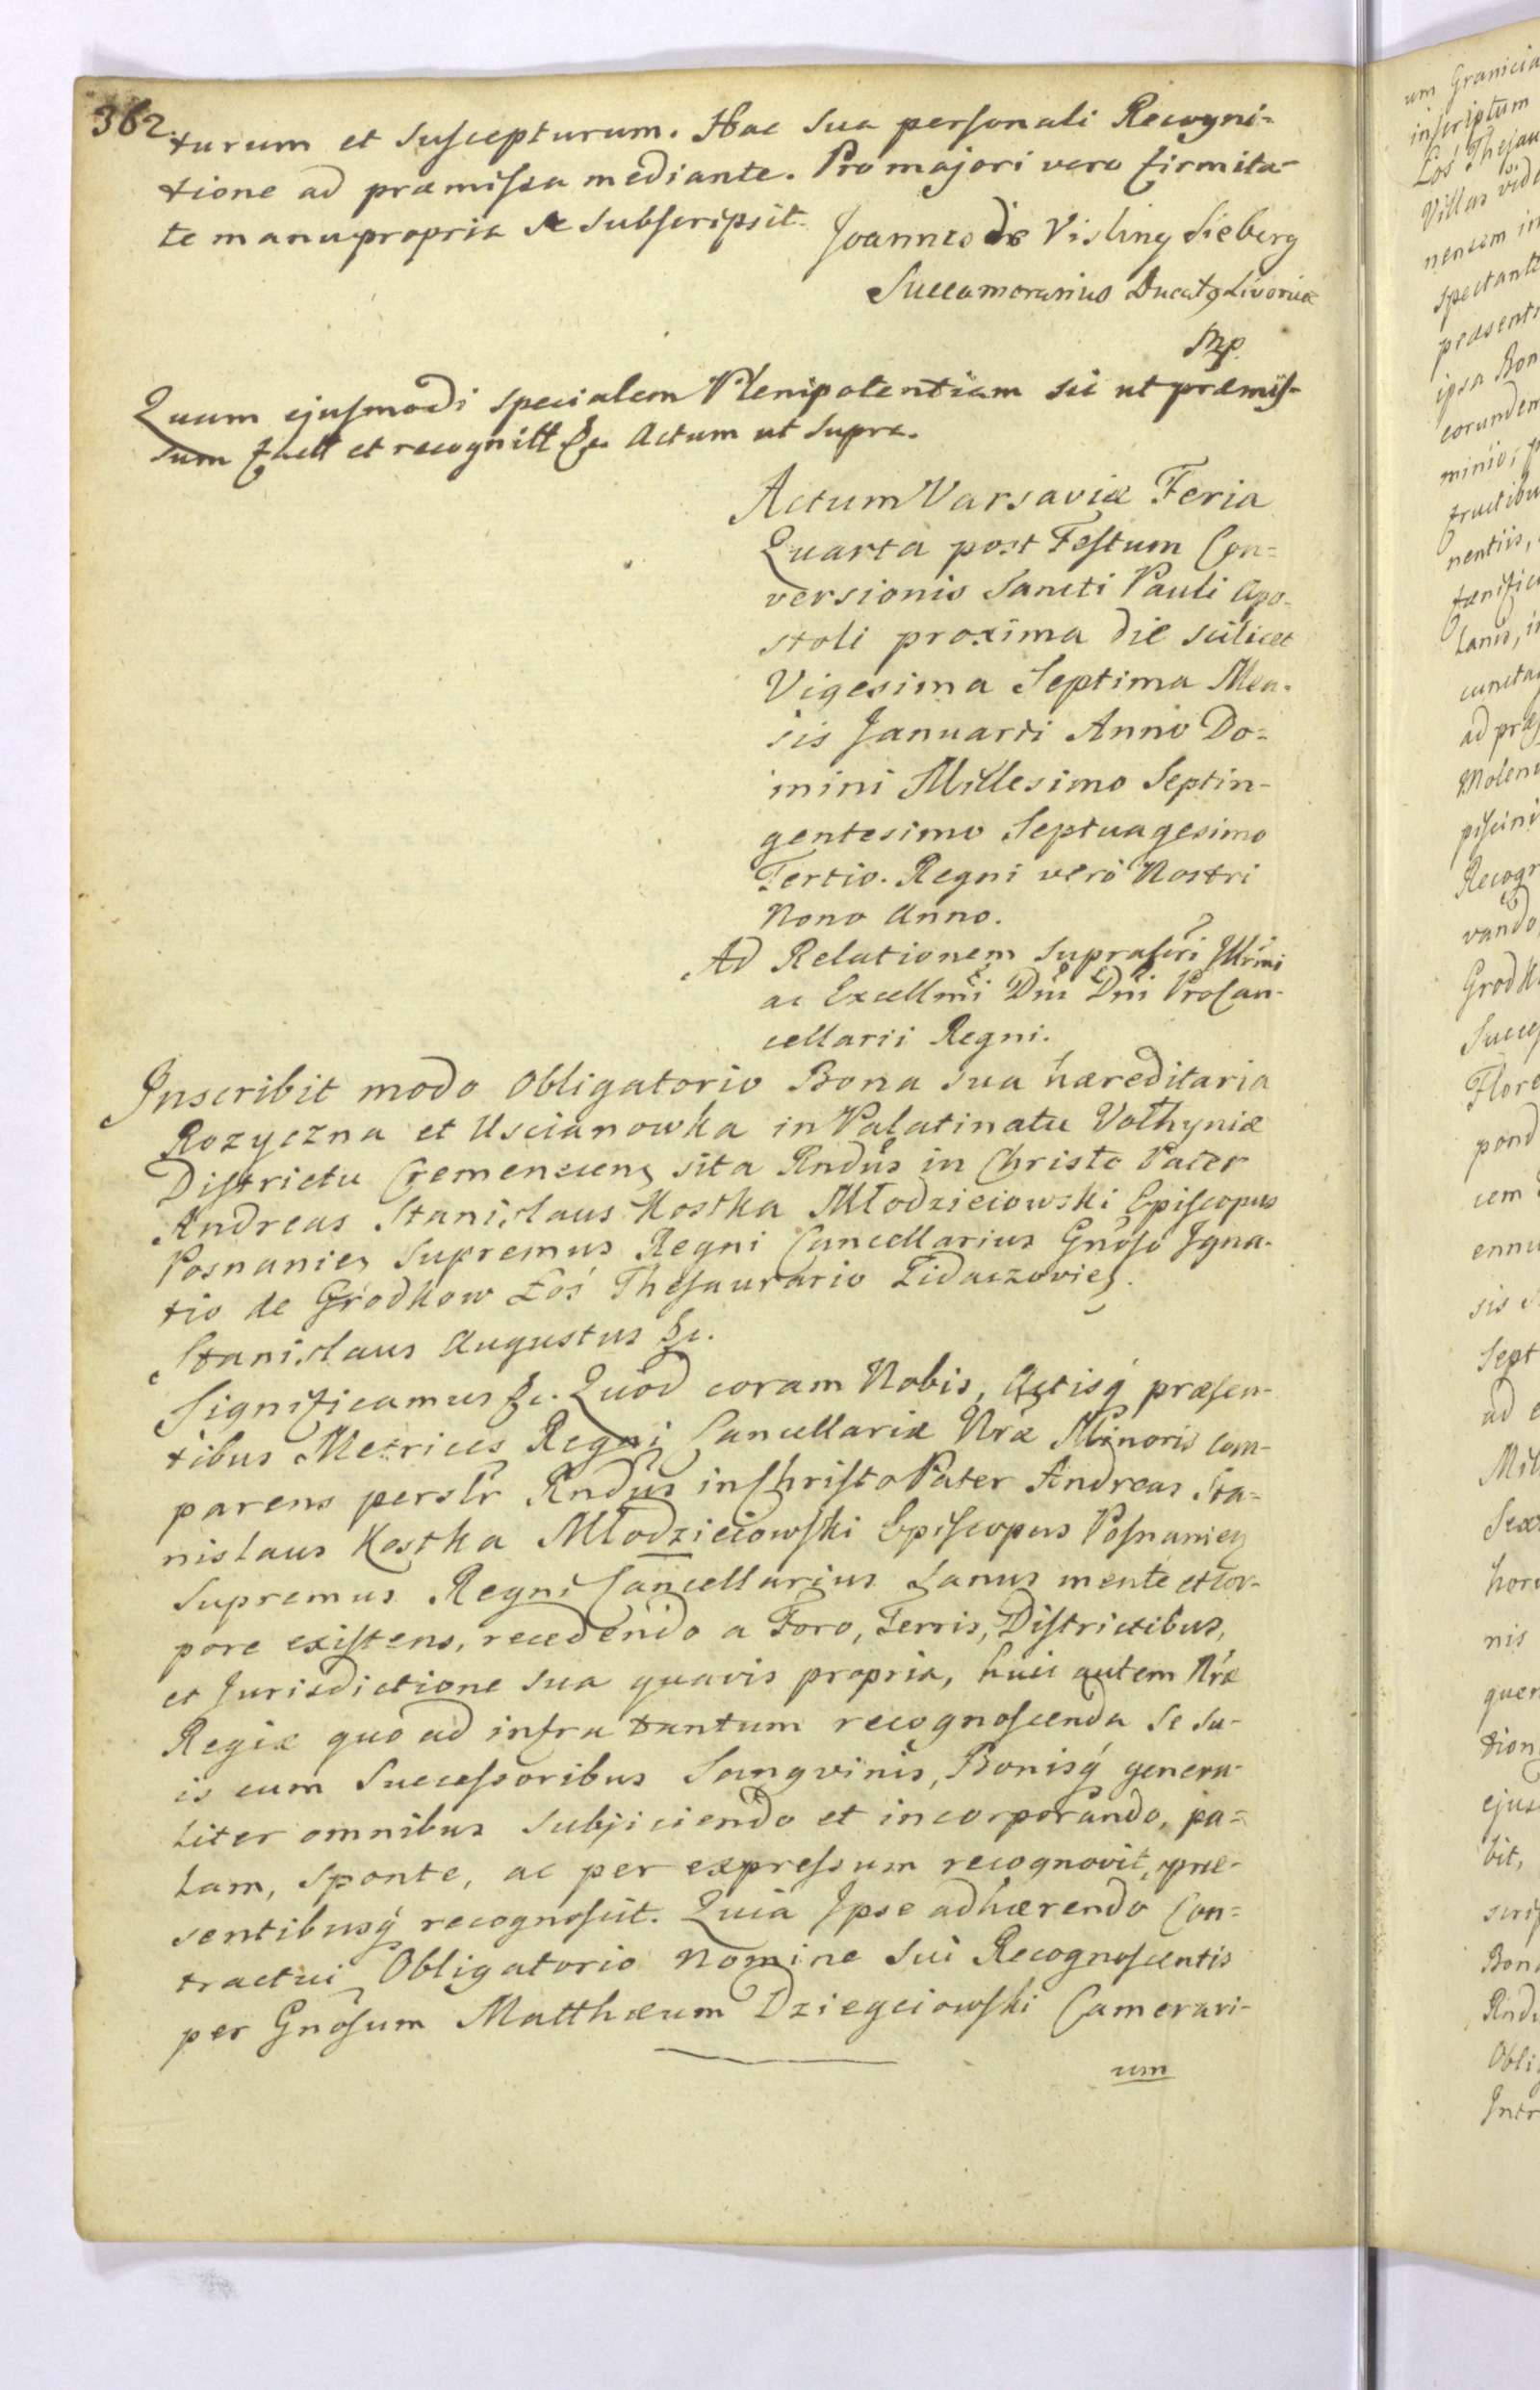 362.
turum et suscepturum. Hac sua personali Recogni=
tione ad præmissa mediante. Pro majori vero firmita-
te manu propria se subscripsit. Joannes de Visling Sieberg
Succamerarius Ducatq Livoniæ
Mp.
Quam ejusmodi specialem Plenipotentiam sic ut præmis-
sum fecit et recognitt &c. Actum ut supra.
Actum Varsaviæ Feria
Quarta post Festum Con=
versionis Sancti Pauli Apo-
stoli proxima die scilicet
Vigesima Septima Men-
sis Januarii Anno Do=
mini Millesimo Septin-
gentesimo Septuagesimo
Tertio. Regni verò Nostri
Nono Anno.
Ad Relationem suprascri Illrmi
ac Excellmi Dni Dni ProCan-
cellarii Regni.
Inscribit modo Obligatorio Bona sua hæreditaria
Rozyczna et Uscianowka in Palatinatu Volhyniæ
Districtu Cremenecens sita Rndus in Christo Pater
Andreas Stanislaus Kostka Młodzieiowski Episcopus
Posnanies Supremus Regni Cancellarius Gnoso Igna-
tio de Gródkow Łoś Thesaurario Zidaczovies.
Stanislaus Augustus &c.
Significamus &c. Quod coram Nobis, Actisq́ præsen-
tibus Metrices Regni Cancellariæ Nræ Minoris com-
parens perslr Rndus in Christo Pater Andreas Sta=
nislaus Kostka Młodzieiowski Episcopus Posnanies
Supremus Regni Cancellarius sanus mente et cor-
pore existens, recedendo a Foro, Terris, Districtibus,
et Jurisdictione sua quavis propria, huic autem Nræ
Regiæ quo ad infra tantum recognoscenda se su-
is cum Successoribus Sangvinis, Bonisq́ genera-
liter omnibus subjiciendo et incorporando, pa=
lam, sponte, ac per expressum recognovit, præ-
sentibusq́ recognoscit. Quia Ipse adhærendo Con=
tractui Obligatorio nomine sui Recognoscentis
per Gnosum Matthæum Dziegciowski Camerari-
um
um Grani
inscriptum
Łoś Thesau
Villas vid
nensem in
spectante
præsent
ipsa Bon
eorundem
minio, p
fructibu
nentiis,
fænific
lanis, i
cuncta
ad præ
Molen
piscini
Recogn
vando
Grodk
Succes
Flore
pond
cem
ennu
sis
Sept
ad e
Mil
Sex
hore
nis
quen
tion
ejus
bit,
scrip
Bon
Rndu
Obli
Intr